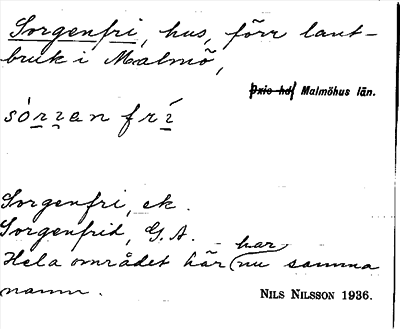 Sorgenfri, hus, förr lant-
bruk i Malmö,
Oxie hd, Malmöhus län.
sórzan frí
Sorgenfri, ek.
Sorgenfrid, G. A.
Hela området här har nu samma
namn.
NILS NILSSON 1936.